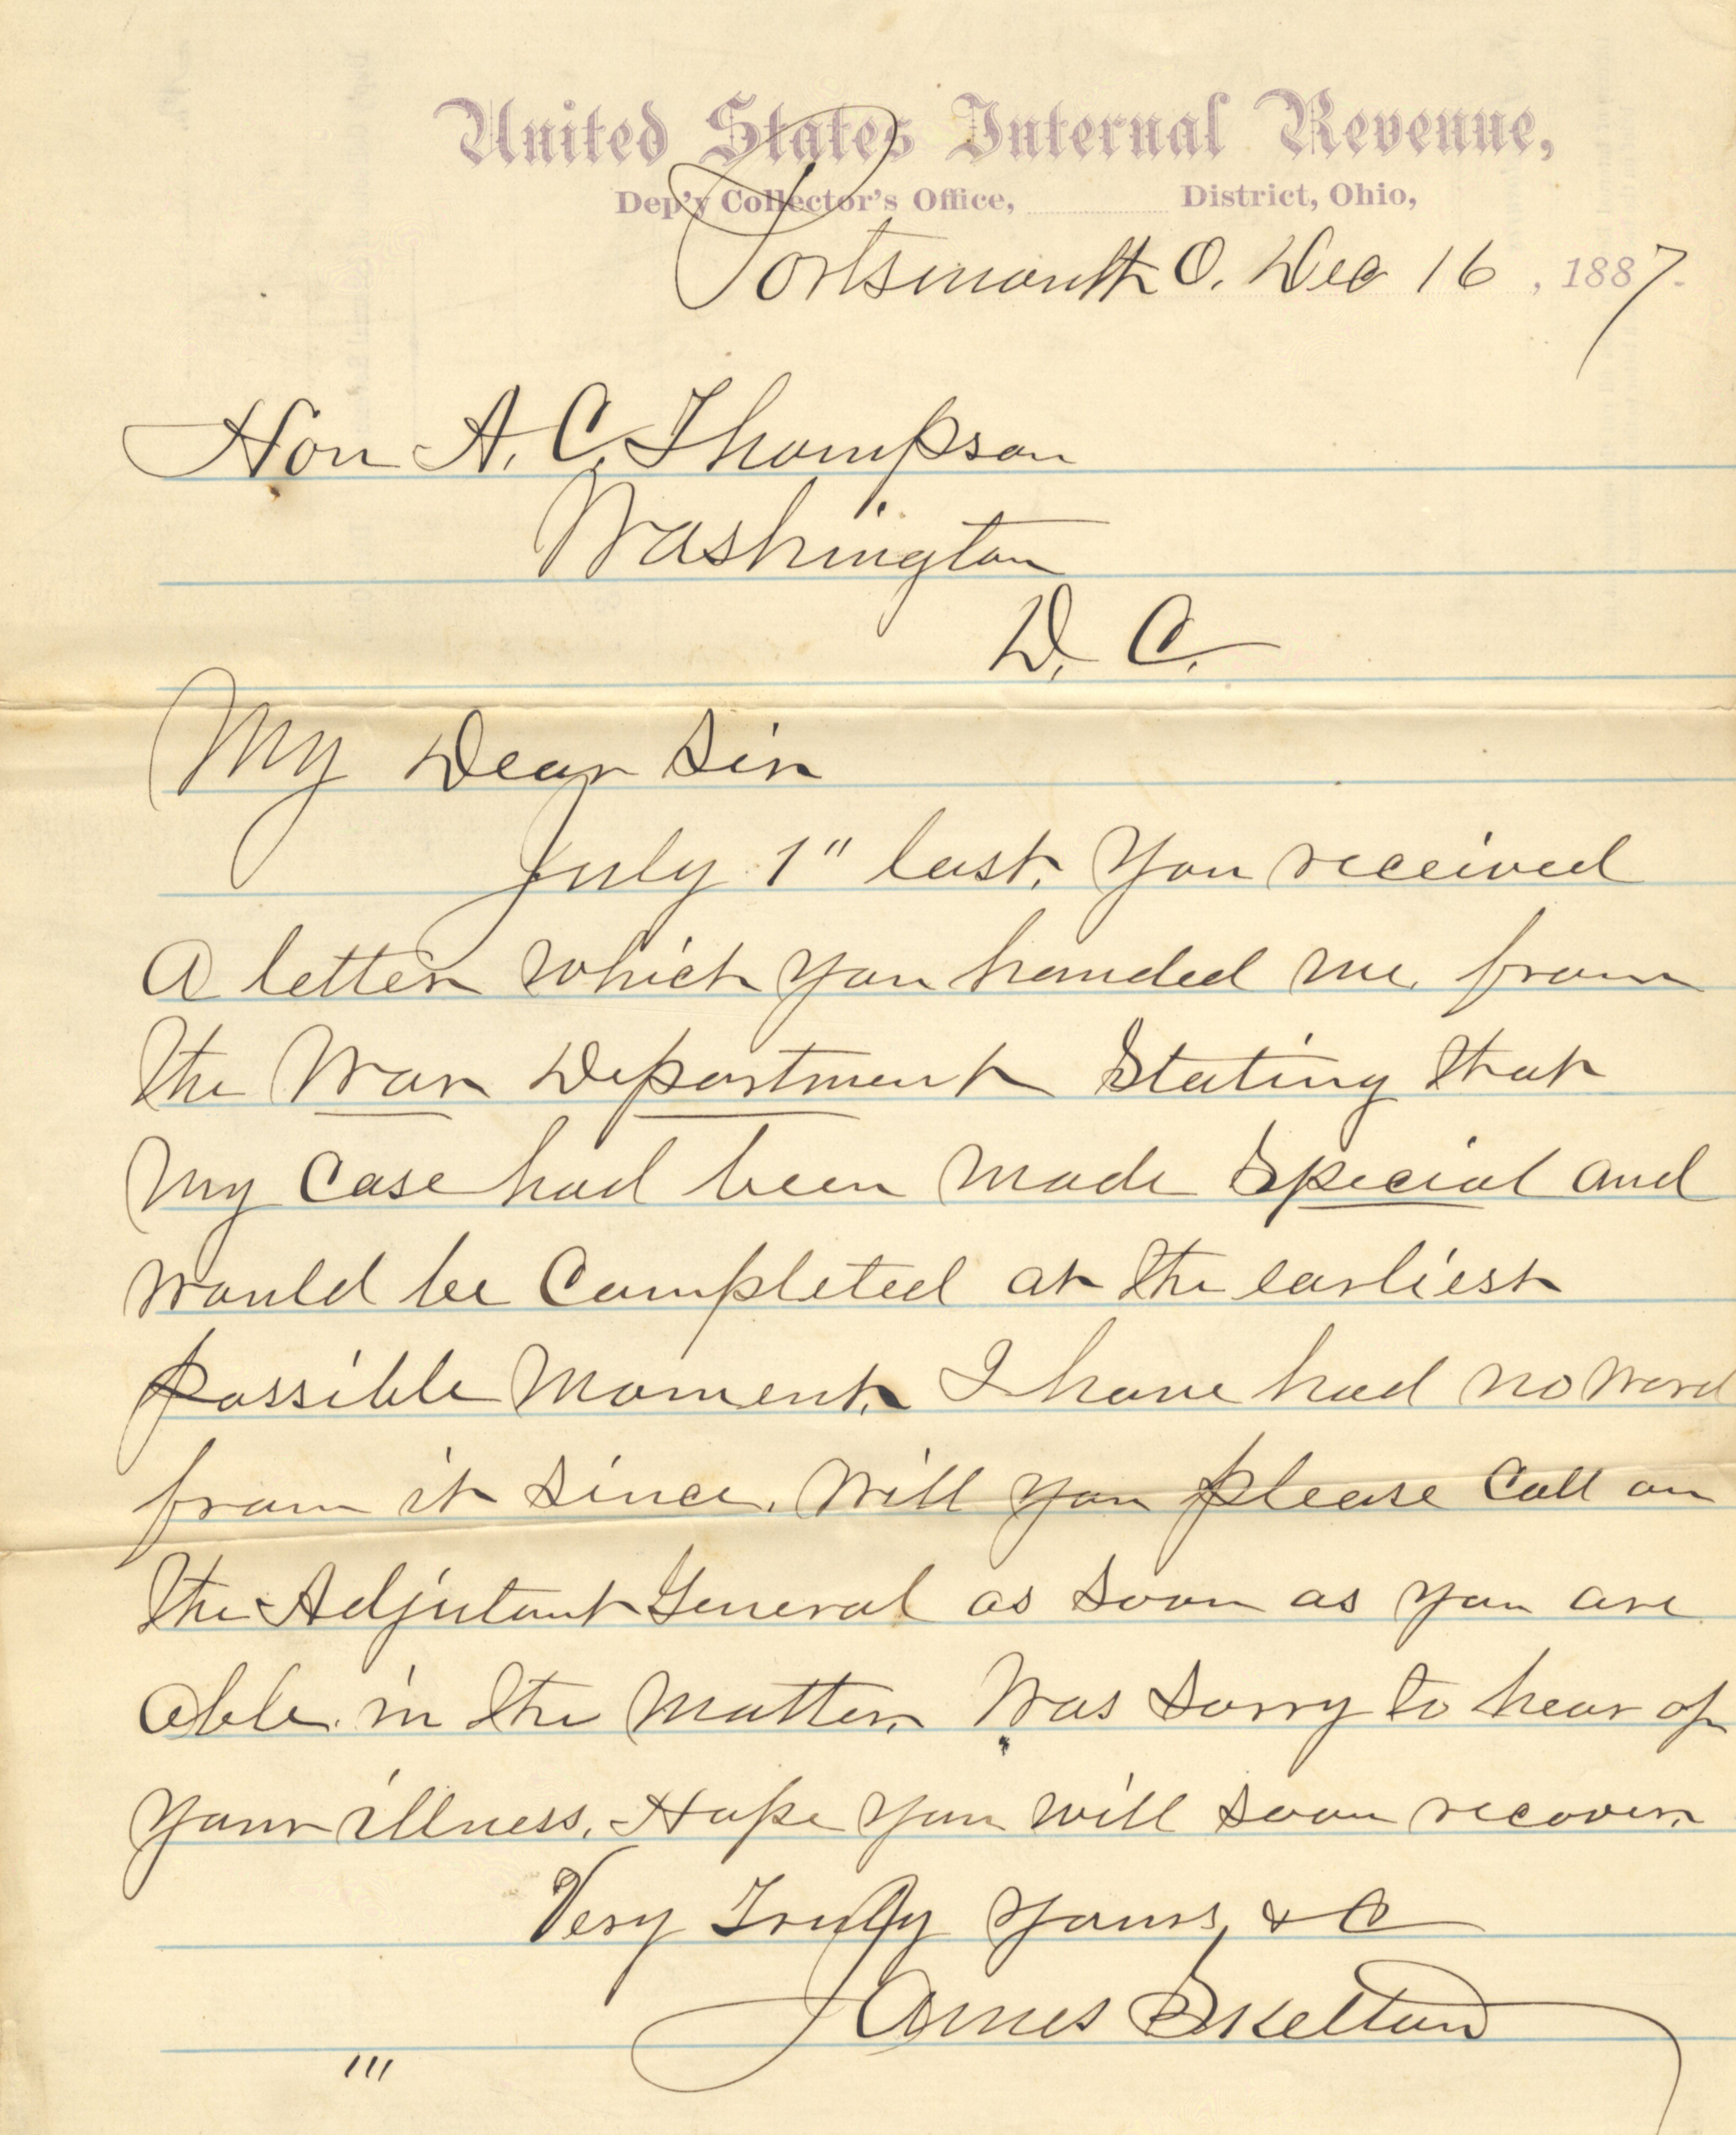 United States Internal Revenue,
Dep'y Collector's Office, District, Ohio,
Portsmouth O. Dec 16, 1887.
Hon A. C. Thompson
Washington
D. C.
My Dear Sir
July 1" last, you received
a letter which you handed me, from
the War Department Stating that
my case had been made Special and
would be Completed at the earliest
possible moment. I have had no word
from it since. Will you please Call on
the Adjutant General as soon as you are
able in the matter. Was sorry to hear of
your illness. Hope you will soon recover.
Very Truly Yours, &C
James Skelton
"'